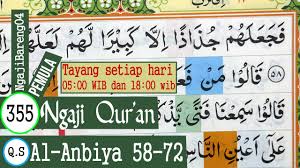 فَجَعَلَهُمْ جُذَاذًا إِلَّا كَبِيرًا لَّهُمْ
Tayang setiap hari
05:00 WIB dan 18:00 wib
٥٨
قَالُوا مَن فَعَلَ
قَالُوا سَمِعْنَا فَتًى
NgajiBareng04
PEMULA
355
Ngaji Qur'an
Q.S
Al-Anbiya 58-72